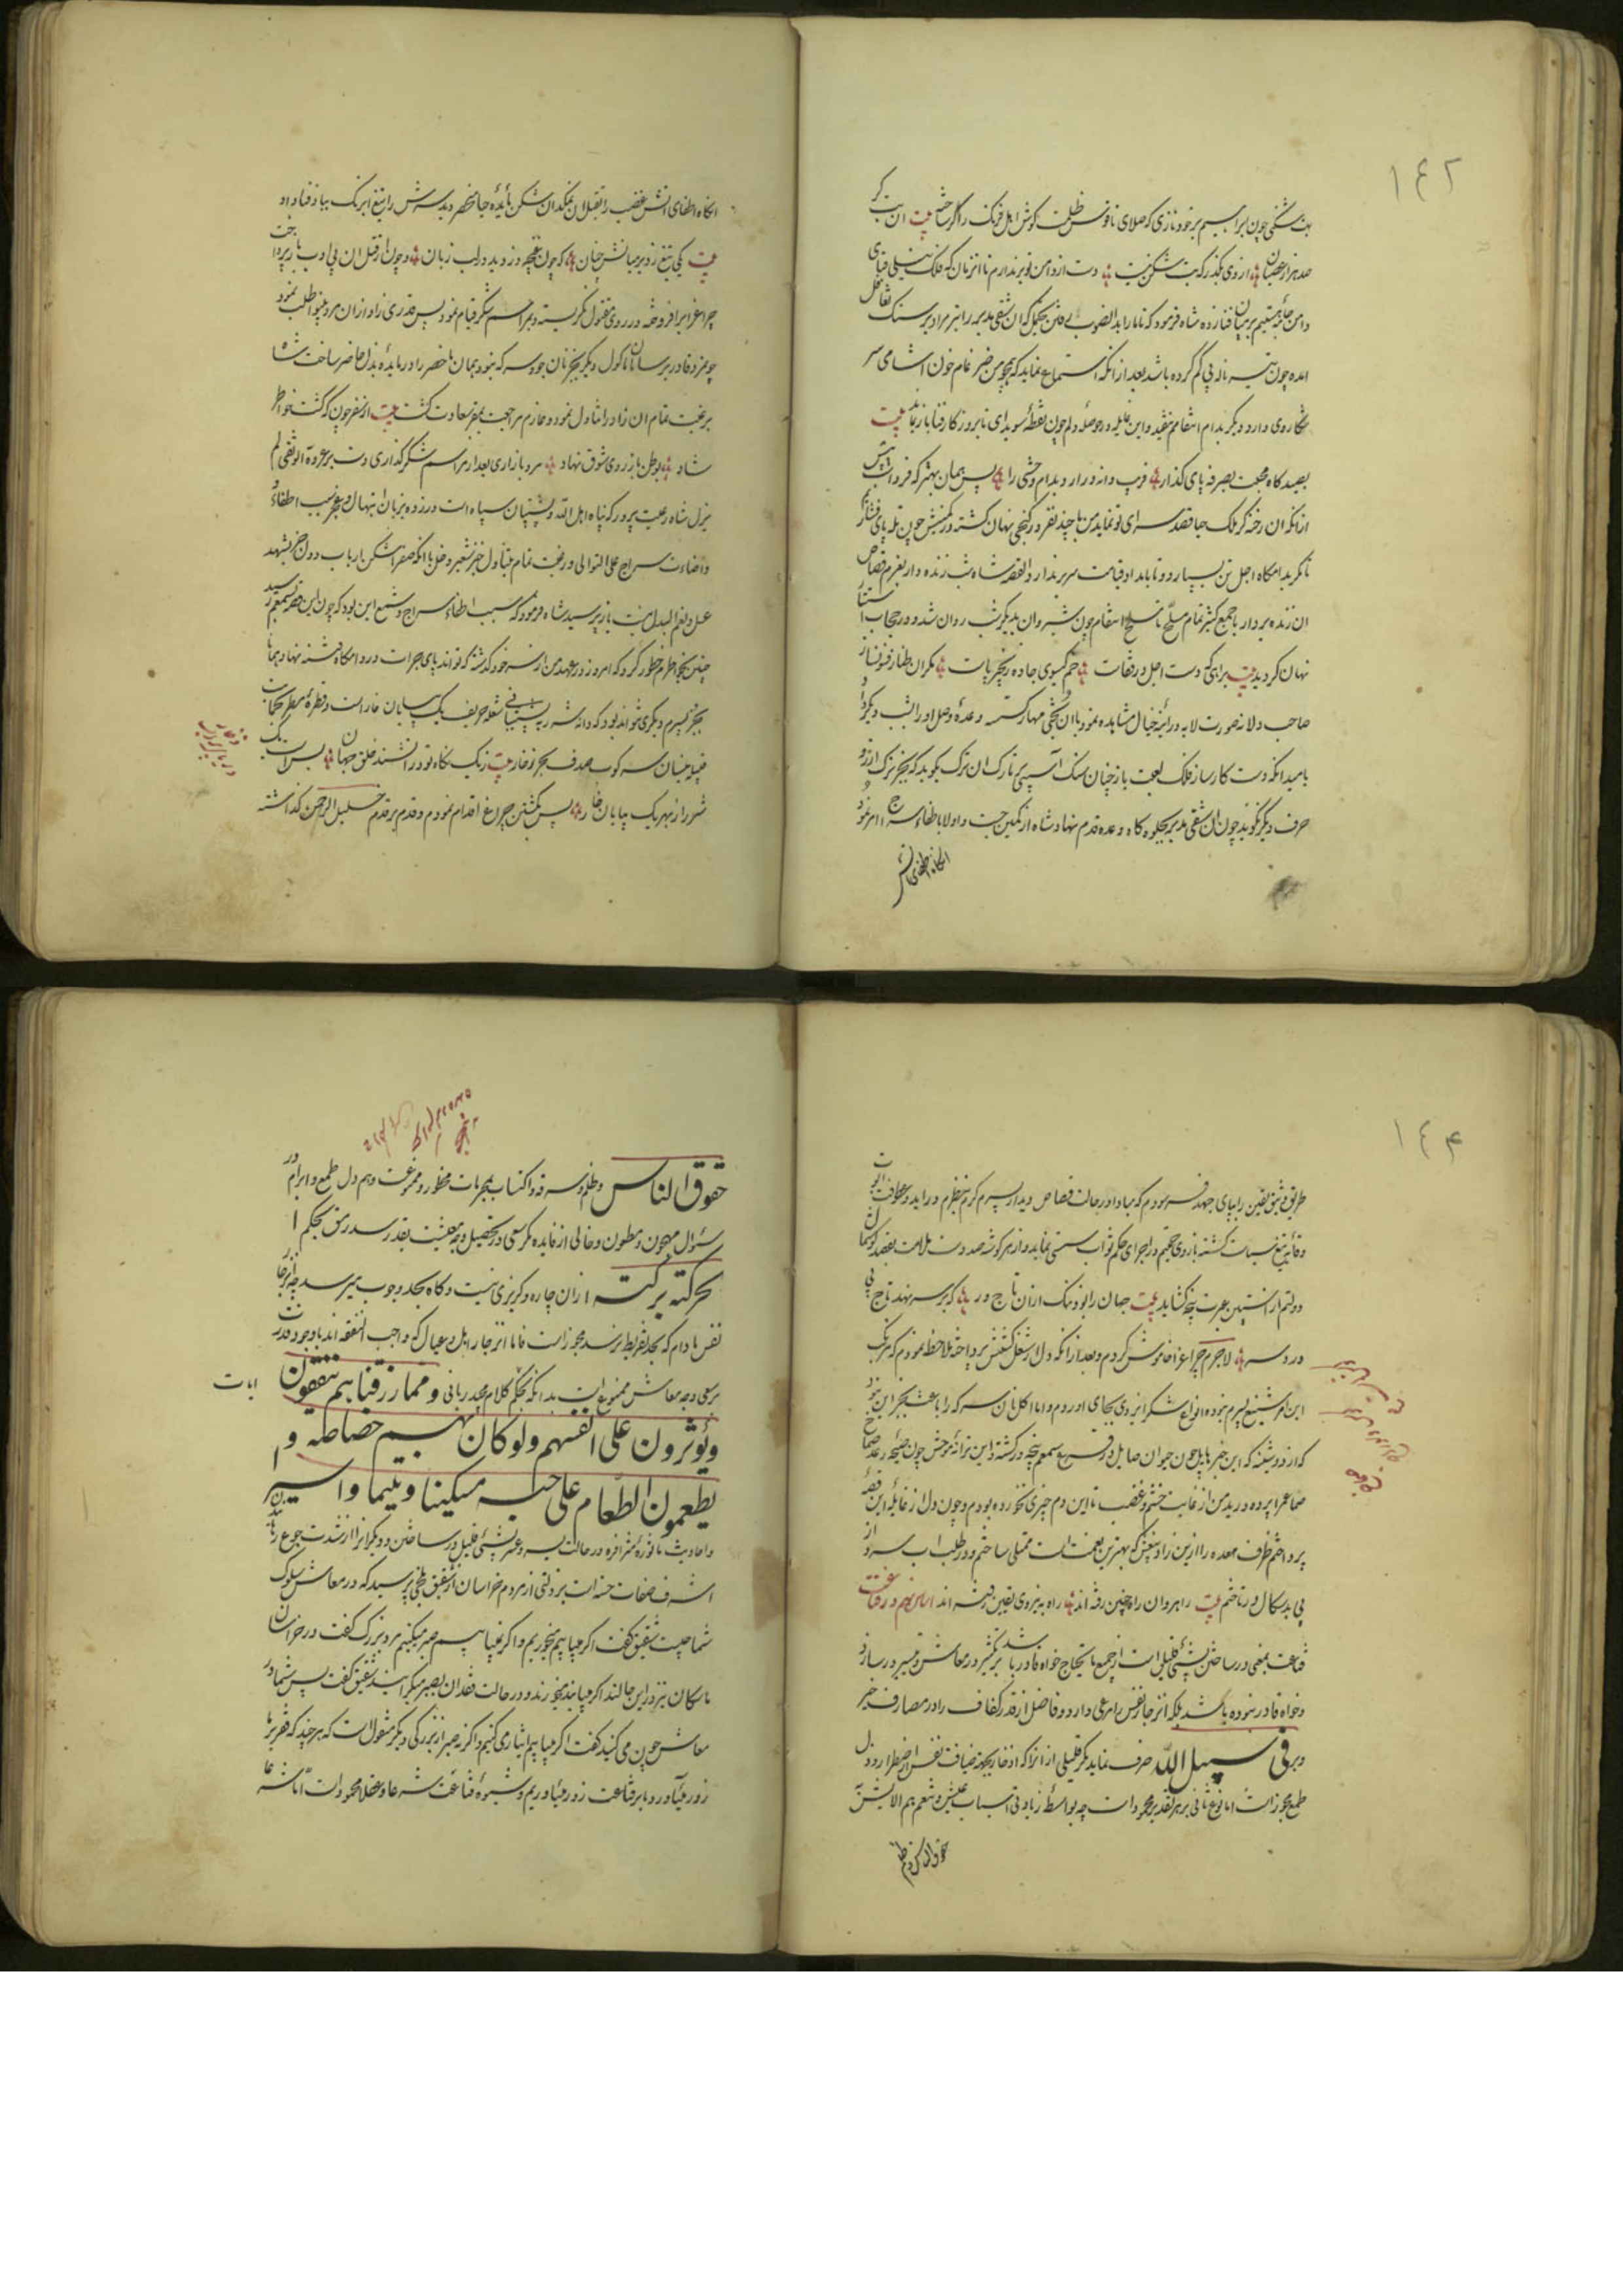 ١٤٢
بت شکنی چون ابراهیم بر خود نازی که صلای ناقوس ظلمت گوش اهل فرنک را کر ساخته بیت ان بت کر
صد هزار عصیان از وی بگذر که بت شکن نیست دست از دامن تو برندارم تا انزمان که فلک نیلی قبای
دامن بر میان فنا زده شاه فرمود که ان شقی مدبر را بر سنک تغافل
امده چون تیر ناله پی کم کرده باشد بعد از انکه استماع نماید که همچو من ضیرغام خون اشامی سر
شکار وی دارد دیگر بدام انتقام نیفتد و این در حوصله دلم چون نقطهٔ سویدای تا بروز کار فنا باز ماند بیت
بصید کاه محبت بصرفه پای کذار فریب دانه در ار و بدام وحشی را پس همان بهتر که فردا شب
از انکه ان رخنه کر ملک حیا قصد سرای تو نماید من با چند نفر در کنجی نهان کشته در کمینش چون تله پای فشارم
تا کربه امکاه اجل تن بسپارد و تا بابد اوقیامت سر بر ندارد القصه شاه شب زنده دار بعزم قصاص
ان زنده بردار با جمع کثیر تمام مسلح با تسلح انتقام چون شیروان بدیکر شب روان شد و در حجاب استتار
نهان کردید بیت براهی که دست اجل در قفاست خم کیسوی جاده زنجیر پاست نکران طناز فسونساز
صاحب دلانه صورت لابه در ائینهٔ خیال مشاهده نمود با ان بختی مهار کسسته وعدهٔ وصل او را بشب دیکر داد
بامید انکه دست کارساز فلک لعبت باز چنان سنک آسیائی بر تارک ان ترک بکوبد که بجز ترک ارزو
حرف دیکر نکوید چون ان شقی مدبر بجلوه کاه وعده قدم نهاد شاه از کمین جست و اولا باطفاء سراج امر نمود
انکاه اطفای اتش
انکاه اطفای اتش غضب را بقتل ان نمکدان شکن مائدهٔ حیا منحصر دیده سرش را بتیغ ابرنک بباد فنا داد
بیت یکی تیغ زد بر میانش چنان که چون غنچه دزدید در لب زبان و چون از قتل ان بی ادب باز پرداخت
چراغرا بر افروخته در روی مقتول نکریسته و بمراسم شکر قیام نمود پس قدری زاد از ان مرد بینوا طلب نمود
چو مزد قادر بر سامان ماکول دیکر بجز نان جو و سرکه نبود همان ما حضر را در مایدهٔ بذل حاضر ساخت شاه
برغبت تمام ان زاد را تناول نمود و عازم مراجعت بمقر سعادت کشت بیت از سفر چون که کشت خواطر
شاد بوطن باز روی شوق نهاد مرد بازاری بعد از مراسم شکر گذاری دست بر عروة الوثقی لم
یزل شاه رعیت پرور که پناه اهل الله و پشتیبان سپاه است در زده بزبان ابتهال و عجز سبب اطفاء
و اضاءت سراج علی التوالی و رغبت تمام بتناول خبز شعیر و خل با انکه صفراشکن ارباب دول جز شهد
عسل و نعم البدل نیست باز پرسید شاه فرمود که سبب اطفاء سراج و شمع این بود که چون این قصه بسمعم رسید
چنین بخواطرم خطور کرد که امروز در عهد من از سر خود کذشته که تواند پای جرات در دامکاه فتنه نهاد همانا
بجز پسرم دیکری نتواند بود که دانه شرر پشتیبانی شعله حریف یک بیابان خار است و قطره
فیل بنیان سر کوب صدف بحر زخار بیت زنک نکاه تو در اتشند خلق جهان بس است یک
شرر از بهر یک بیابان خار پس بکشتن چراغ اقدام نمودم و قدم بر قدم خلیل الرحمن کذاشته
١٤٣
طریق وثیق یقین را بپای جهد فرسودم که مبادا در حالت قصاص دیدار پسرم کرم بنظرم در اید و عطوفت ابوت
وقایهٔ تیغ سیاست کشته بازوی تصمیم در اجرای حکم ثواب سستی نماید و از هر کوشه صد دست ملامت بقصد کوشمال
دولتم از استین عبرت پنجه کشاید بیت جهان را بود ننک از ان تاج ور که بر سر نهد تاج بی
درد سر لاجرم چراغ را خاموش کردم و بعد از انکه دل از شغل کشتنش پرداخته ملاحظه نمودم که مرتکب
این امر شنیع پسرم نبوده انواع شکر ایزدی بجای اوردم و اما اکل نان سرکه را باعث بجز این نبود
که از دوشینه که این خبر هایل چون حیوان صایل در قریع سمعم پنجه ور کشته و این ترانهٔ موحش چون صیحهٔ رعد صماخ
صماعمرا پرده دریده من از غایت خشم و غضب تا این دم چیزی نخورده بودم و چون دل از غایلهٔ این قصه
پرداختم ظرف معده را از این زاد بیغش که بهترین نعمت است ممتلی ساختم و در طلب اب سر از
پی بد سکال در تاختم بیت راهروان راه چنین رفته اند راه به نیروی یقین رفته اند اساس دوم در قناعت
قناعت بمعنی در ساختن بشئ قلیل است از جمع ما یحتاج خواه قادر باشد بر کثیر در معاش و میسر در ساز
و خواه قادر نبوده باشد بلکه انزجار نفس را مرعی دارد و فاضل از قدر کفاف را در مصارف خیر
و بر فی سبیل الله صرف نماید مکر قلیلی از انرا که ادخار بجهة ضیافت نفس اضطرار و ذل
طمع مجوز است اما نوع ثانی بر هر تقدیر محمود است چه بواسطهٔ زیادتی اسباب عیش و تنعم هم الایش
حقوق الناس و ظلم و سرقه و اکتساب بمحرمات محظور و ممنوعست و هم دل طمع و ابرام در
سئوال مرهون و مطعون و خالی از فایده مکر سعی در تحصیل وجه معیشت بقدر سد رمق بحکم ا
لحرکته برکته از ان چاره و کریزی نیست و کاه بحد وجوب میرسد چه انزجار
نفس مادام که بحد تفریط نرسد مجوز است فاما انزجار اهل و عیال که واجب النفقه اند با وجود قدرت
بر سعی وجه معاش ممنوع است بدانکه بحکم کلام مجید ربانی و ممارزقنا هم ینفقون ایات
ویؤثرون علی انفسهم ولو کان بهم خصاصه و
یطعمون الطعام علی حبه مسکینا ویتیما واسیرا
و احادیث ماثوره متوافره در حالت یسر و عسر بشئ قلیل در ساختن و دیکرانرا از شدت جوع رهانیدن
اشرف صفات حسنه است بزرکی از مردم خراسان از شقیق بلخی پرسید که در معاش سلوک
شما چیست شقیق کفت اکر میابیم میخوریم و اکر نمیابیم صبر میکنیم مرد بزرک کفت در خراسان
ما سکان نیز در این حالند اکر میابند میخورند و در حالت فقدان بصبر میکرایند شقیق کفت پس شما در
معاش چون می کنید کفت اکر میابیم ایثار می کنیم و اکر نه صبر از بزرکی دیکر منقول است که هر چند که فقر بر ما
زور میاورد ما بر قناعت زور میاوریم و شیوهٔ قناعت شرعا و عقلا محمود است